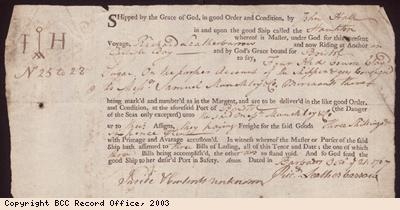 SHipped by the Grace of God, in good Order and Condition, by John Hall
in and upon the good Ship called the
whereof is Master, under God for this present
Voyage, Richard Leatherbarrow and now Riding at Anchor
and by God's Grace bound for Bristol
to say, Four Hhds
Sugar, On the proper Account of the Shipper & goes Consigned
to Messrs. Samuel Munckley & Co. Merchants there
being mark'd and number'd as in the Margent, and are to be deliver'd in the like good Order,
and Condition, at the aforesaid Port of Bristol (the Danger
of the Seas only excepted) unto the said Samuel Munckley & Co.
or to their Assigns, they paying Freight for the said Goods Three Shillings
with Primage and Average accustom'd. In witness whereof the Master or Purser of the said
Ship hath affirmed to three Bills of Lading, all of this Tenor and Date; the one of which
three Bills being accomplish'd, the other two to stand void. And so God send the
good Ship to her desir'd Port in Safety. Amen. Dated in Barbados
Inside & Contents unknown
Richd. Leatherbarrow
I H
No 25 to 28
Copyright BCC Record Office, 2003